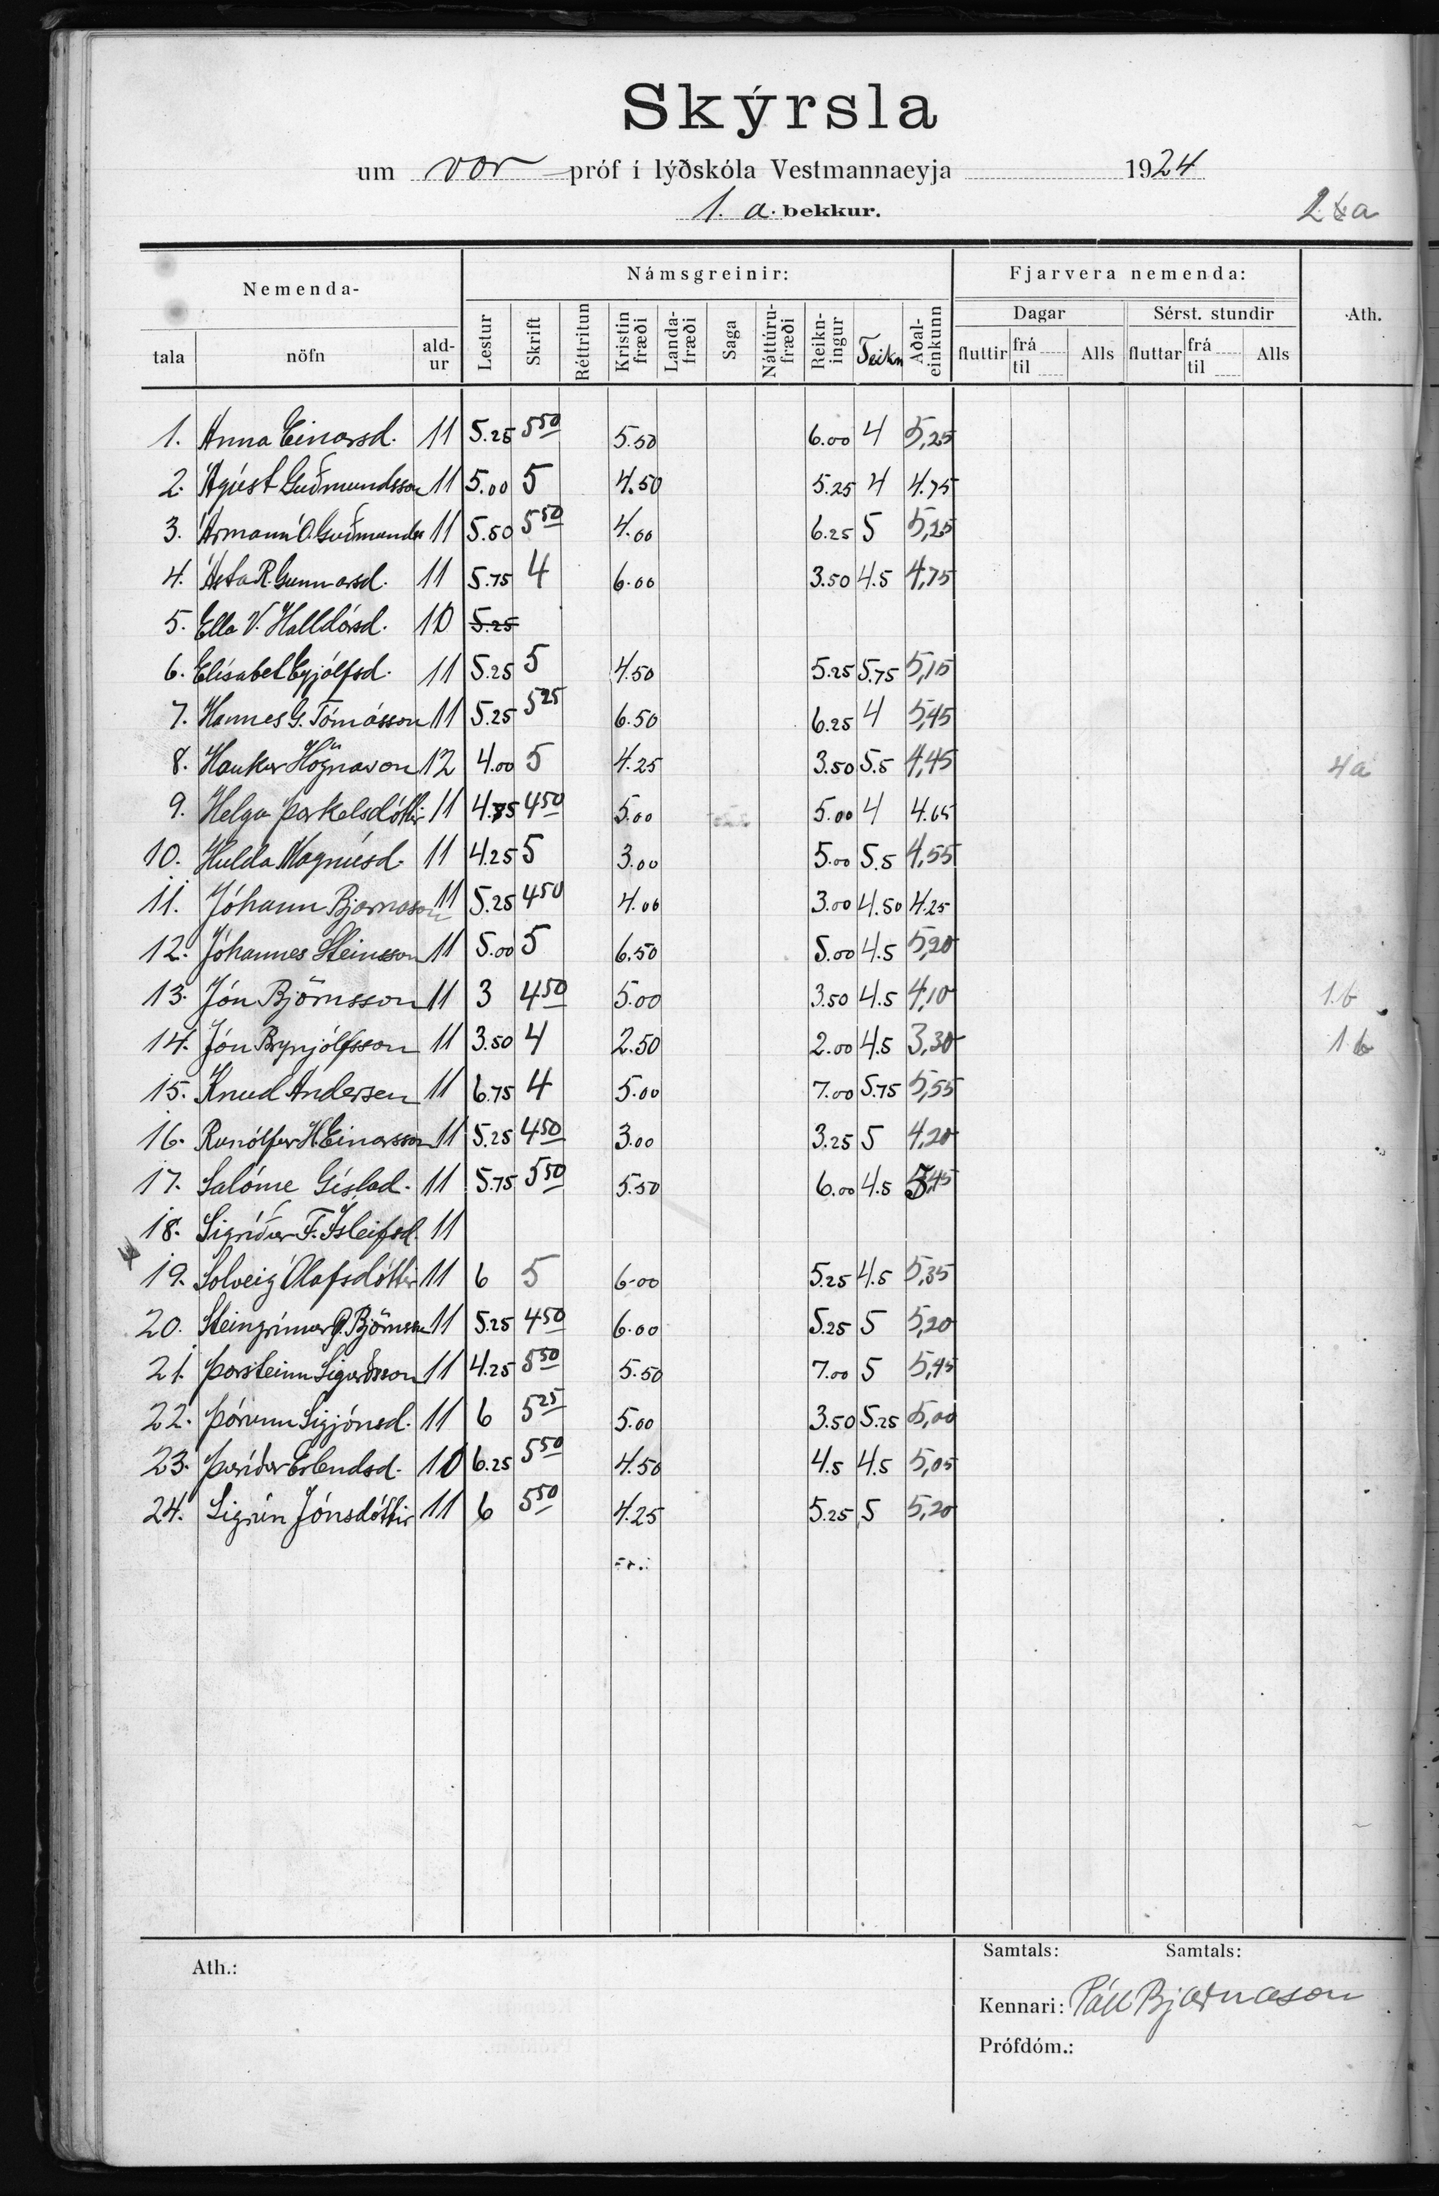 Skýrsla
um vor próf í lýðskóla Vestmannaeyja 1924
1. a. bekkur.
Nemenda- Námsgreinir: Fjarvera nemenda: Ath.
Dagar Sérst. stundir
tala nöfn ald-ur Lestur Skrift Réttritun Kristin fræði Landa-fræði Saga Náttúru-fræði Reikn-ingur Teikn Aðal-einkunn fluttir frá til Alls fluttar frá til Alls
1. Anna Einarsd. 11 5.25 5 50 5.50 6.00 4 5,25
2. Ágúst Guðmundsson 11 5.00 5 4.50 5.25 4 4.75
3. Ármann Ó. Guðmunds 11 5.50 5 50 4.00 6.25 5 5,25
4. Ásta R. Gunnarsd. 11 5.75 4 6.00 3.50 4.5 4,75
5. Ella V. Halldórsd. 10 5.25
6. Elísabet Eyjólfsd. 11 5.25 5 4.50 5.25 5.75 5,15
7. Hannes G. Tómásson 11 5.25 5 25 6.50 6.25 4 5,45
8. Haukur Högnason 12 4.00 5 4.25 3.50 5.5 4,45 4a
9. Helga Þorkelsdóttir 11 4.75 4 50 5.00 5.00 4 4.65
10. Hulda Magnúsd. 11 4.25 5 3.00 5.00 5.5 4,55
11. Jóhann Bjarnason 11 5.25 4 50 4.00 3.00 4.50 4.25
12. Jóhannes Steinsson 11 5.00 5 6.50 5.00 4.5 5,20
13. Jón Björnsson 11 3 4 50 5.00 3.50 4.5 4,10 1.b
14. Jón Brynjólfsson 11 3.50 4 2.50 2.00 4.5 3,30 1.b
15. Knud Andersen 11 6.75 4 5.00 7.00 5.75 5,55
16. Runólfur H. Einarsson 11 5.25 4 50 3.00 3.25 5 4,20
17. Salóme Gíslad. 11 5.75 5 50 5.50 6.00 4.5 5,45
18. Sigríður F. Ísleifsd. 11
19. Solveig Ólafsdóttir 11 6 5 6.00 5.25 4.5 5,35
20. Steingrímur Björnsson 11 5.25 4 50 6.00 5.25 5 5,20
21. Þorsteinn Sigurðsson 11 4.25 5 50 5.50 7.00 5 5,45
22. Þórunn Sigjónsd. 11 6 5 25 5.00 3.50 5.25 5,00
23. Þuríður Erlendsd. 10 6.25 5 50 4.50 4.5 4.5 5,05
24. Sigrún Jónsdóttir 11 6 5 50 4.25 5.25 5 5,20
Samtals: Samtals:
Ath.:
Kennari: Páll Bjarnason
Prófdóm.: